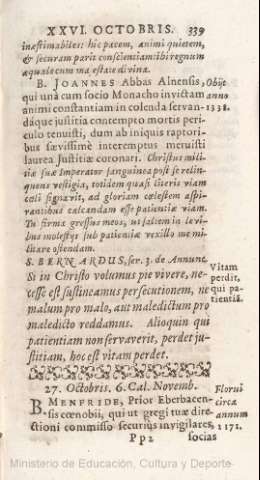 XXVI. OCTOBRIS. 339
inæstimabiles: hic pacem, animi quietem,
& securam parit conscientiam tibi regnum
æquale cum maiestate divina.
B. JOANNES Abbas Alnensis, Obijt
qui unà cum socio Monacho invictam anno
animi constantiam in colenda servan- 1338.
dáque justitia contempto mortis peri-
culo tenuisti, dum ab iniquis raptori-
bus sævissimè interemptus meruisti
laurea Justitiæ coronari. Christus mili-
tiæ suæ Imperator sanguinea post se relin-
quens vestigia, totidem quasi literis viam
cœli signavit, ad gloriam cœlestem aspi-
rantibus calcandam esse patientiæ viam.
Tu firma gressus meos, ut saltem in levi-
bus molestijs sub patientiæ vexillo me mi-
litare ostendam.
S. BERNARDUS, ser. 3. de Annunc. Vitam
Si in Christo volumus pie vivere, ne- perdit,
cesse est sustineamus persecutionem, ne qui pa-
malum pro malo, aut maledictum pro tientiã.
maledicto reddamus. Alioquin qui
patientiam non servaverit, perdet ju-
stitiam, hoc est vitam perdet.
27. Octobris. 6. Cal. Novemb. Floruit
B. MENFRIDE, Prior Eberbacen- circa
sis cœnobij, qui ut gregi tuæ dire- annum
ctioni commisso securius invigilares, 1172.
Pp2 socias
Ministerio de Educación, Cultura y Deporte